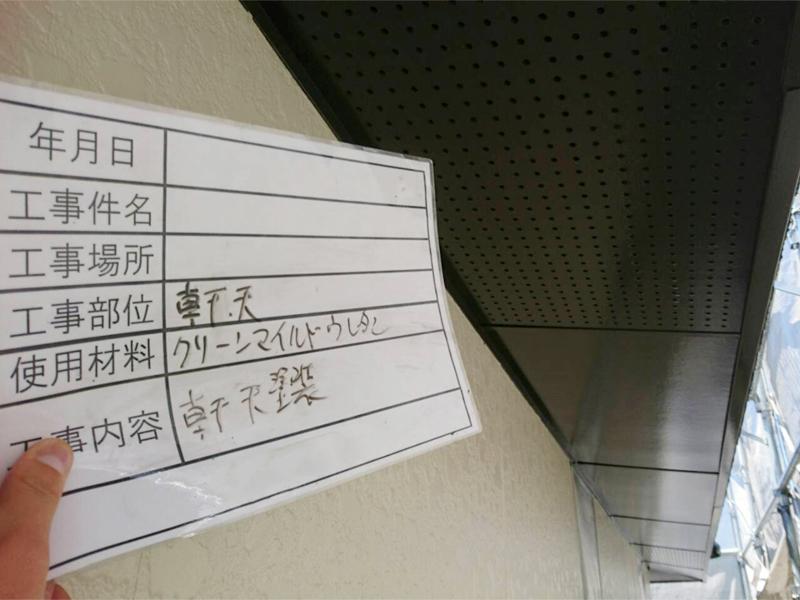 年月日
工事件名
工事場所
工事部位 軒天
使用材料 クリーンマイルドウレタン
工事内容 軒天塗装